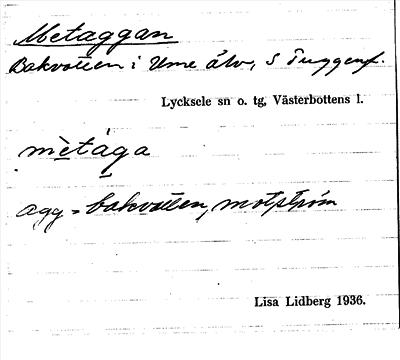 Metaggan
Bakvatten i Ume älv, S Tuggenf.
Lycksele sn o. tg, Västerbottens l.
mètàga
agg = bakvatten, motström
Lisa Lidberg 1936.